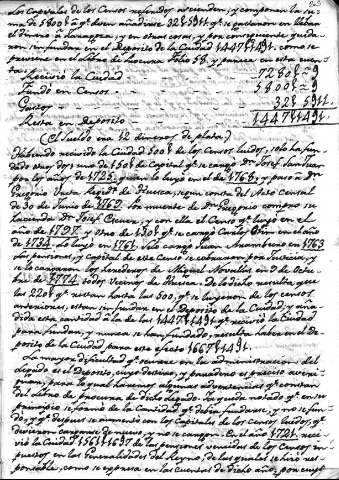 los Capitales de los Censos refundos ascienden, y componen la su-
ma de 5800 à q.e deven añadirse 32
el dinero à , y en otras cosas, y por consiguiente queda-
ron sin fundar en el Deposito de la Ciudad 1447 como se
previene en el Libro de Procura Folio 58, y parece en esta cuen-
ta.
Recivió la Ciudad 7280
Fundó en Censos 5800
Gastos 32
Resta en deposito 1447
(El sueldo en 12 dineros de plata)
Habiendo recivido la Ciudad 500 de los Censos luidos, solo ha fun-
dado uno de 150 de Capital q.e se cargó D.n Josef
por los años de 1725, quien lo luyó en el de 1768, y pasó à D.n
Gregorio de Huesca, segun consta del Acto Censal
de 30 de Junio de 1769. Por muerte de D.n Gregorio compró su
hacienda D.n Josef , y con ella el Censo q.e luyó en el
año de 1797. y otro de 130 q.e se cargó Carlos en el año
de 1734. Lo luyó en 1761. Juan en 1763
Las pensiones, y Capital de este Censo se cobraron por Justicia, y
se lo cargaron los herederos de Miguel Novallas en 9 de Octu-
bre de 1774. todos Vecinos de Huesca. De lo dicho resulta que
las 220 q.e restan hasta las 500, q.e se luyeron de los censos
anteriores, estan sin fundar en el Deposito de la Ciudad, y aña-
dida esta cantidad à la de las 1447 q.e recivió la Ciudad
para fundar, y nunca se han fundado, resulta haber en el De-
posito de la Ciudad para este efecto 1667
La mayor dificultad q.e se ofrece en la administracion del
Legado es el Deposito, cuyo destino, y paradero es preciso averi-
guar, para lo qual haremos algunas advertencias q.e constan
del Libro de procura de dicho Legado. Ya queda notado q.e en su
principio se formó de la Cantidad q.e debia fundarse, y no se fun-
dó, y q.e despues se aumentó con los Capitales de los Censos luidos, q.e
divieron cargarse de nuevo, y no se cargaron. En el año 1721. reci-
vió la Ciudad de las pensiones vencidas de los Censos im-
puestos en las Generalidades del Reyno, de las quales se hizo res-
ponsable, como se expresa en las cuentas de dicho año, por cuyo